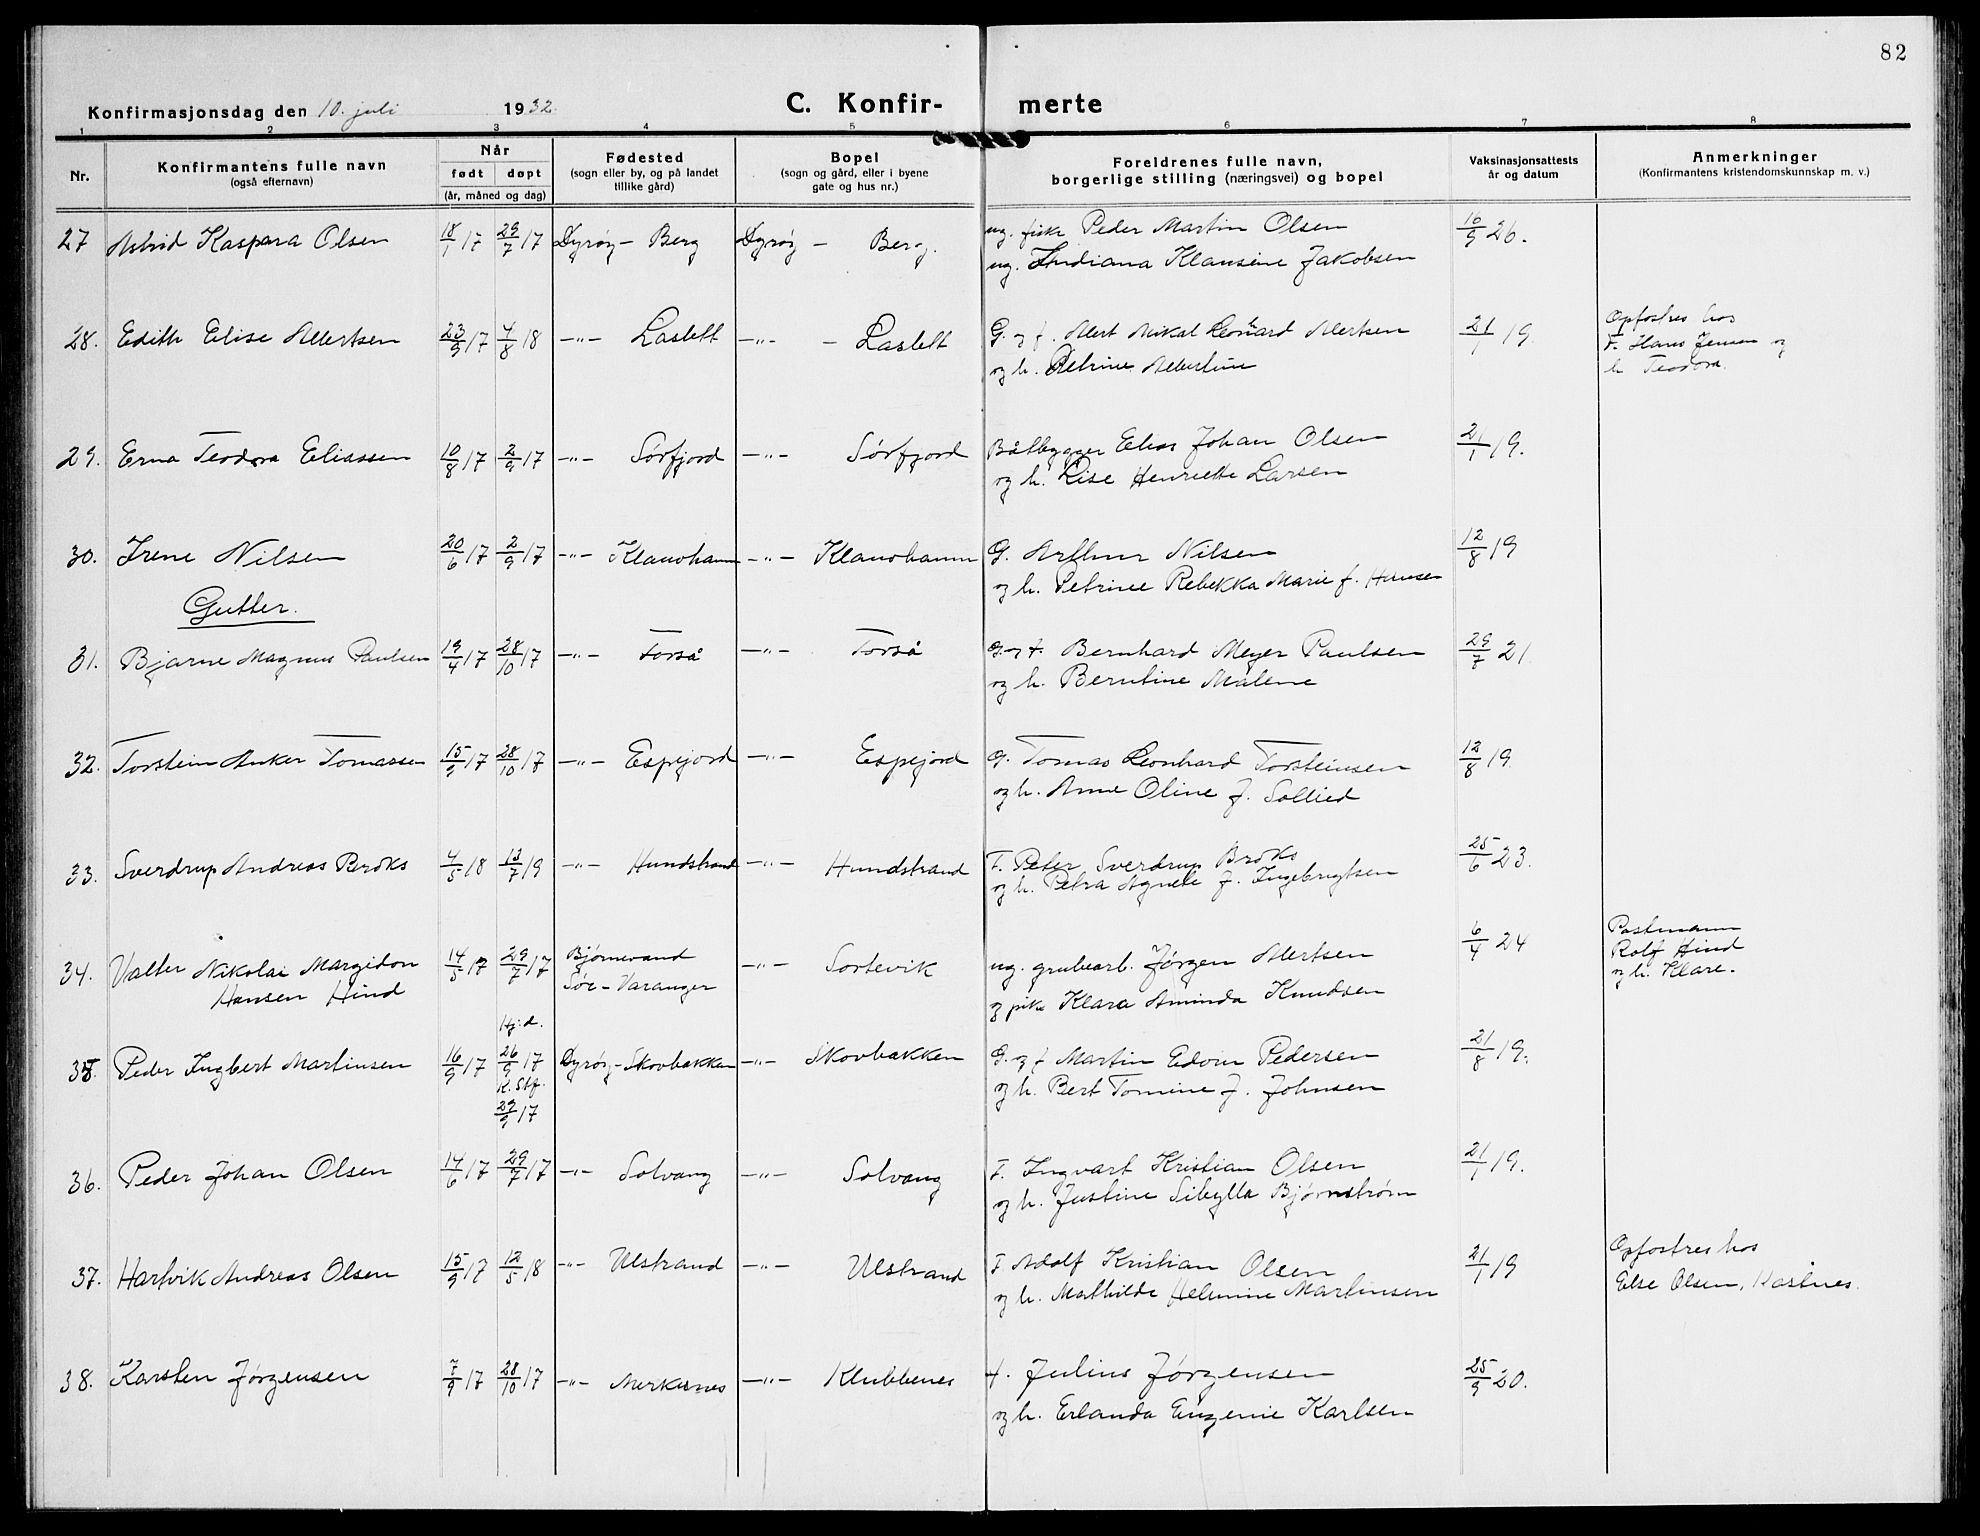 82
Konfirmasjonsdag den 10. juli 1932.
C. Konfir- merte
1 2 3 4 5 6 7 8
Nr.
Konfirmantens fulle navn
(også efternavn)
Når
født døpt
(år, måned og dag)
Fødested
(sogn eller by, og på landet
tillike gård)
Bopel
(sogn og gård, eller i byene
gate og hus nr.)
Foreldrenes fulle navn,
borgerlige stilling (næringsvei) og bopel
Vaksinasjonsattests
år og datum
Anmerkninger
(Konfirmantens kristendomskunnskap m. v.)
27 Astrid Kaspara Olsen 18/1 17 29/7 17 Dyrøy - Berg Dyrøy - Berg. ug. fisk. Peder Martin Olsen 16/9 26.
ug. Indiana Klausine Jakobsen
28. Edith Elise Albertsen 23/9 17 4/8 18 -"- Laslett -"- - Laslett G. og f. Albert Mikal Leonard Albertsen 21/1 19.
og h. Petrine Albertine
Opfostres hos
F. Hans Jensen og
h. Teodora.
29. Erna Teodora Eliassen 10/8 17 2/9 17 -"- Sørfjord -"- Sørfjord Båtbygger Elias Johan Olsen 21/1 19.
og h. Lise Henriette Larsen
30. Irene Nilsen 20/6 17 2/9 17 -"- Klauvhamn -"- Klauvhamn G. Arthur Nilsen 12/8 19
og h. Petrine Rebekka Marie f. Hansen
Gutter.
31. Bjarne Magnus Paulsen 19/4 17 28/10 17 -"- Forså -"- Forså G. og f. Bernhard Meyer Paulsen 29/7 21
og h. Berntine Malene
32. Torstein Anker Tomassen 15/9 17 28/10 17 -"- Espejord -"- Espejord G. Tomas Leonhard Torsteinsen 12/8 19
og h. Anne Oline f. Sollied
33. Sverdrup Andreas Broks 4/5 18 13/7 19 -"- Hundstrand -"- Hundstrand F. Peter Sverdrup Broks 25/6 23.
og h. Petra Agnete f. Ingebrigtsen
34. Valter Nikolai Margidon 14/5 17 29/7 17 Bjørnevand -"- Sortevik ug. grubearb. Jørgen Albertsen 6/4 24
Hansen Hind Sør-Varanger og pike Klara Aminda Knudsen
Postmann
Rolf Hind
og h. Klare.
35. Peder Ingbert Martinsen 16/9 17 Hj: d. 26/9 17 K. Stf. 29/9 17 Dyrøy - Skovbakken -"- Skovbakken G. og f Martin Edvin Pedersen 21/8 19.
og h. Bert Tomine f. Johnsen
36. Peder Johan Olsen 14/6 17 29/7 17 -"- Solvang -"- Solvang F. Ingvart Kristian Olsen 21/1 19.
og h. Justine Sibylla Bjørnstrøm
37. Hartvik Andreas Olsen 15/9 17 12/5 18 -"- Ulstrand -"- Ulstrand F Adolf Kristian Olsen 21/1 19
og h. Mathilde Helmine Martinsen
Opfostres hos
Else Olsen, Kastnes.
38. Karsten Jørgensen 7/9 17 28/10 17 -"- Merkenes -"- Klubbenes f. Julius Jørgensen 25/9 20.
og h. Erlanda Eugenie Karlsen